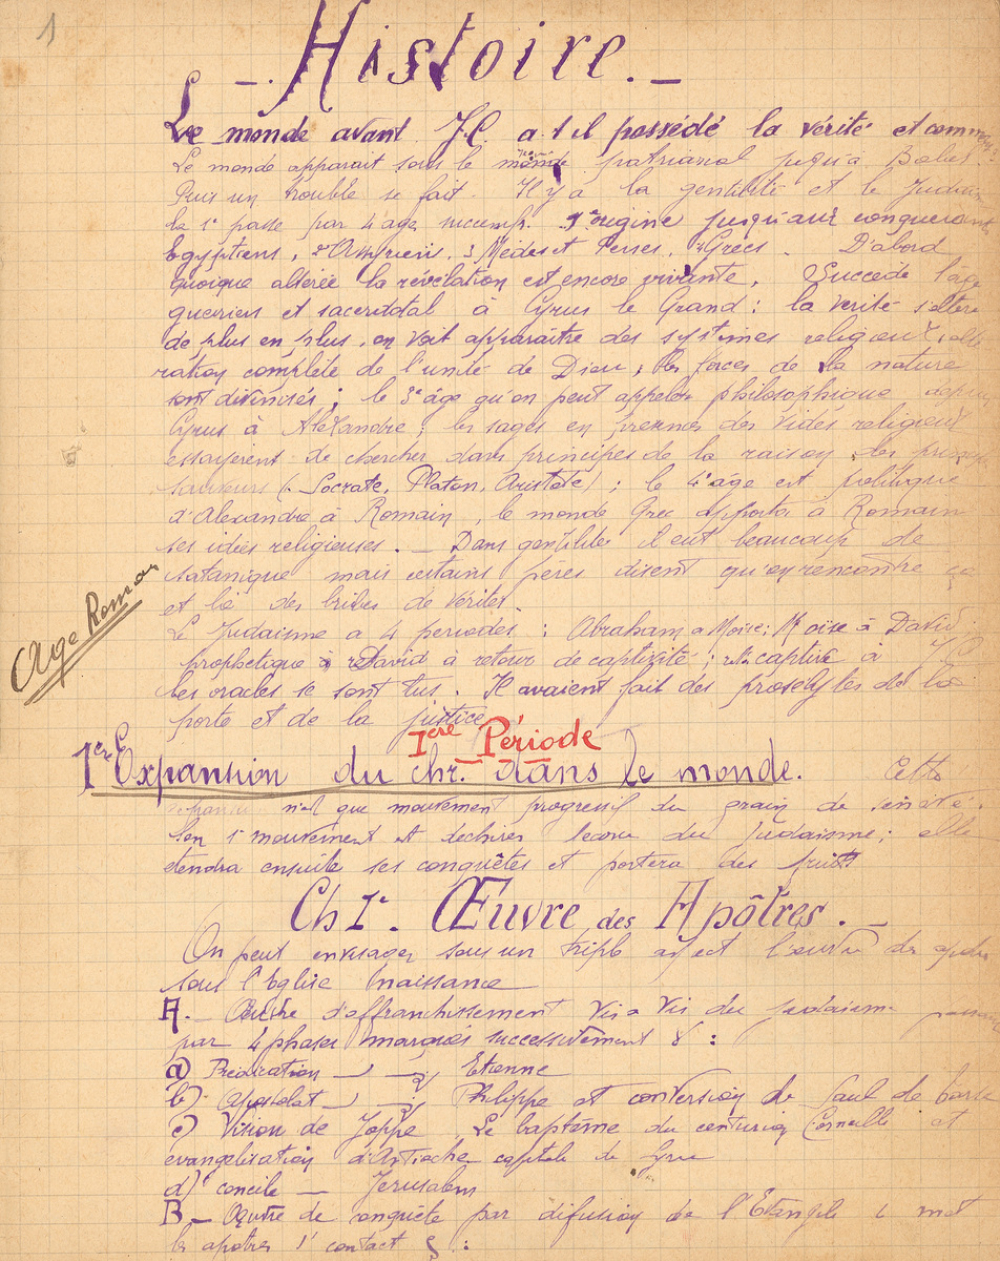 1
Histoire.
Le monde avant J.C. a t il possédé la vérité et comm
Le monde apparait sous le monde patriarcal jusqu'à Babel
Puis un trouble se fait. Il y a la gentilité et le Judaïsme
la 1e passe par 4 age 1° origine jusqu'aux conquerants
Egyptiens, 2° Assyriens, 3 Médes et Perses, 4 Grecs. D'abord
quoique altérée la révélation est encore vivante. Succède l'age
guerrier et sacerdotal à Cyrus le Grand : la verité s'altere
de plus en plus, on voit apparaître des systèmes religieux,
ration complète de l'unité de Dieu, les forces de la nature
sont divinisés ; le 3e âge qu'on peut appeler philosophique depuis
Cyrus à Alexandre, les sages en des vides religieux
essayèrent de chercher dans principes de la raison des
(Socrate, Platon, Aristote) ; le 4e âge est politique
d'Alexandre à Romain, le monde Grec apporta à Romain
ses idées religieuses. — Dans gentilité il eut beaucoup de
satanique mais certains pères disent qu'en rencontre ça
et là des bribes de vérités.
Le Judaisme a 4 periodes : Abraham a Moïse ; Moïse à David ;
prophetique David à retour de captivité ; captiv à
les oracles se sont tus. Il avaient fait des prosélytes de la
porte et de la justice
Age Romain
Ière Période
1ère Expansion du chr. dans le monde. Cette
n'est que mouvement progressif du grain de
Son 1e mouvement est dechirer du Judaïsme ; elle
étendra ensuite ses conquêtes et portera des fruits
Ch Ie. Œuvre des Apôtres. —
On peut envisager sous un triple aspect l'œuvre des apotres
sous l'Eglise naissance
A. — Œuvre d'affranchissement vis a vis du judaisme
par 4 phases marqués successivement :
a) Prédication — Etienne
b) Apostolat — Philippe et conversion de Saul de
c) Vision de Joppe Le baptême du centurion Corneille et
evangelisation d'Antioche capitale de Syrie
d) concile — Jerusalem
B — Œuvre de conquête par difusion de l'Evangile met
les apotres contact :